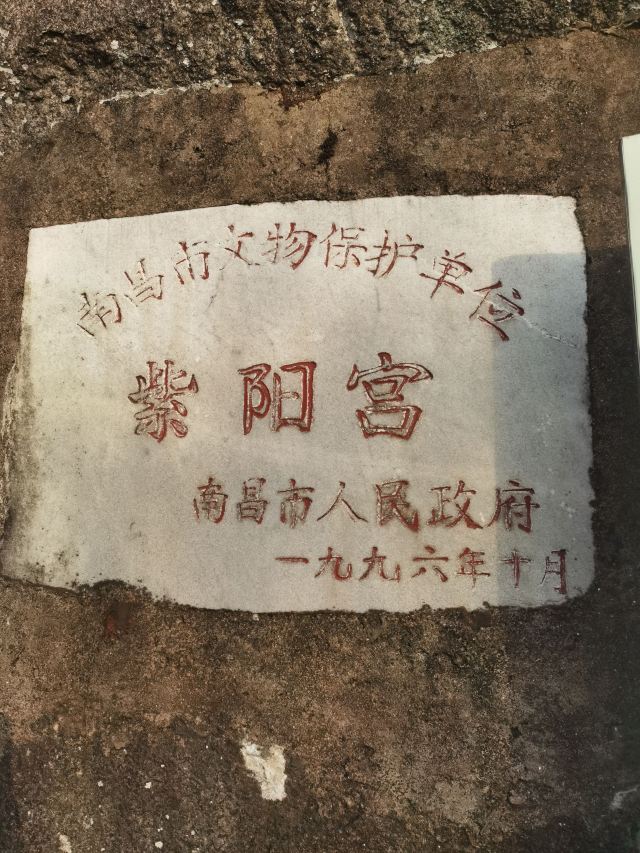 南昌市文物保护单位
紫阳宫
南昌市人民政府
一九九六年十月